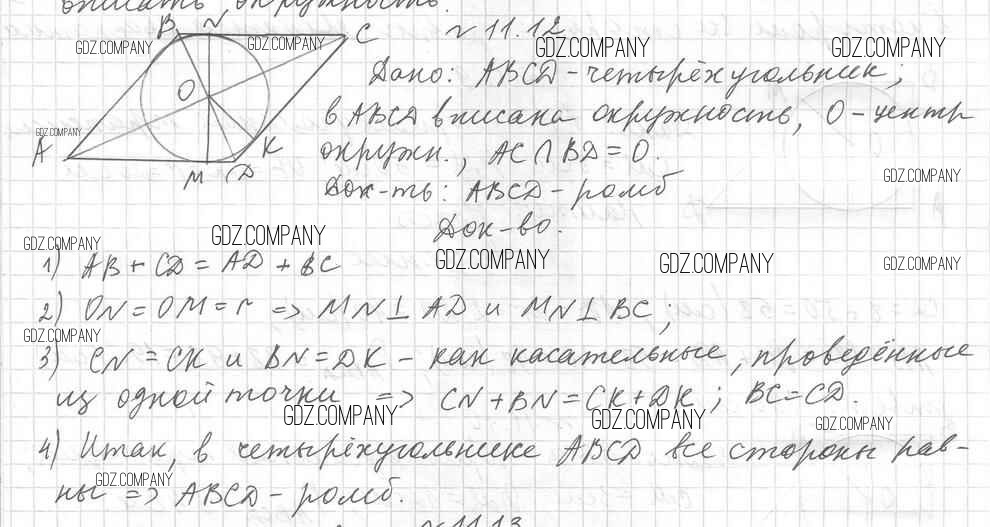 вписать окружность.
B N C N 11.12
GDZ.COMPANY GDZ.COMPANY GDZ.COMPANY GDZ.COMPANY
Дано: ABCD - четырёхугольник;
O
в ABCD вписана окружность, O - центр
GDZ.COMPANY
A K окружн., AC ∩ BD = O.
M D Док-ть: ABCD - ромб
GDZ.COMPANY
Док-во.
GDZ.COMPANY GDZ.COMPANY GDZ.COMPANY GDZ.COMPANY GDZ.COMPANY
1) AB + CD = AD + BC
2) ON = OM = r => MN ⊥ AD и MN ⊥ BC;
GDZ.COMPANY
3) CN = CK и BN = DK - как касательные, проведённые
из одной точки => CN + BN = CK + DK; BC = CD.
GDZ.COMPANY GDZ.COMPANY GDZ.COMPANY
4) Итак, в четырёхугольнике ABCD все стороны рав-
GDZ.COMPANY
ны => ABCD - ромб.
N 11.13